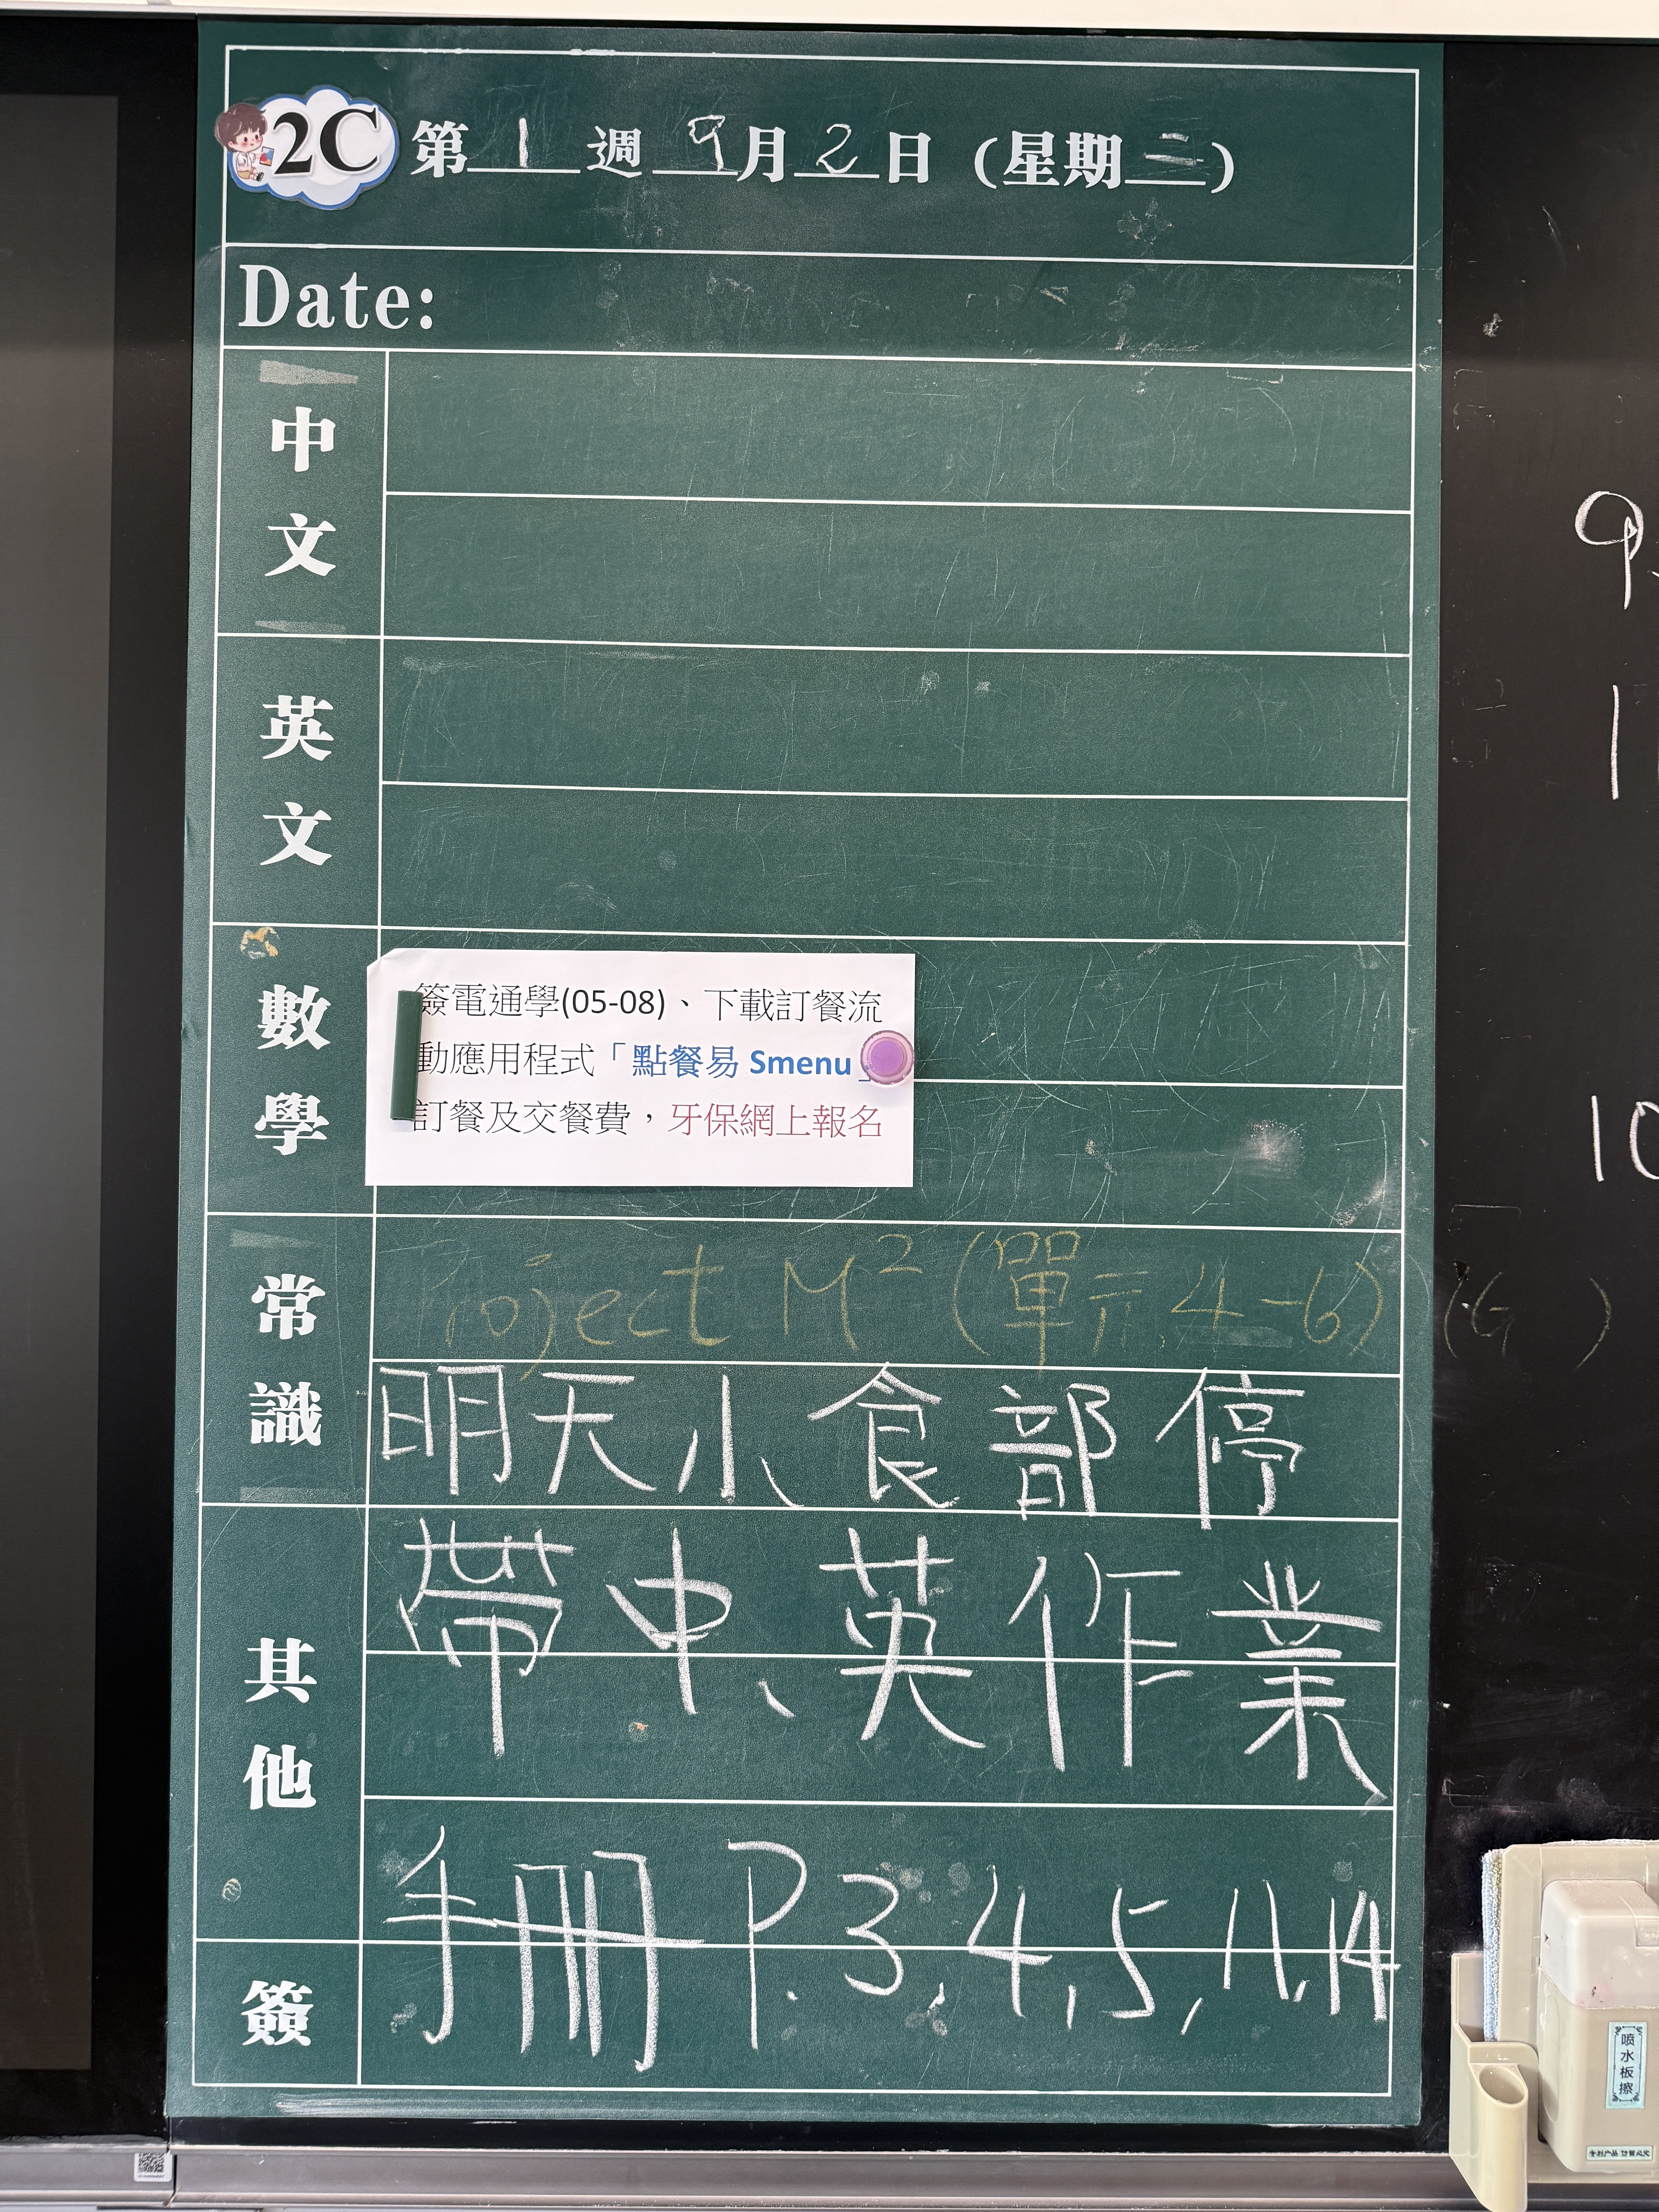 2C 第 1 週 9 月 2 日 (星期二)
Date:
中文
英文
數學
簽電通學(05-08)、下載訂餐流
動應用程式「點餐易 Smenu」
訂餐及交餐費，牙保網上報名
常識
Project M² (單元 4-6) (G )
明天小食部停
其他
帶中、英作業
簽
手冊 P.3,4,5,11,14
9
1
10
喷水板擦